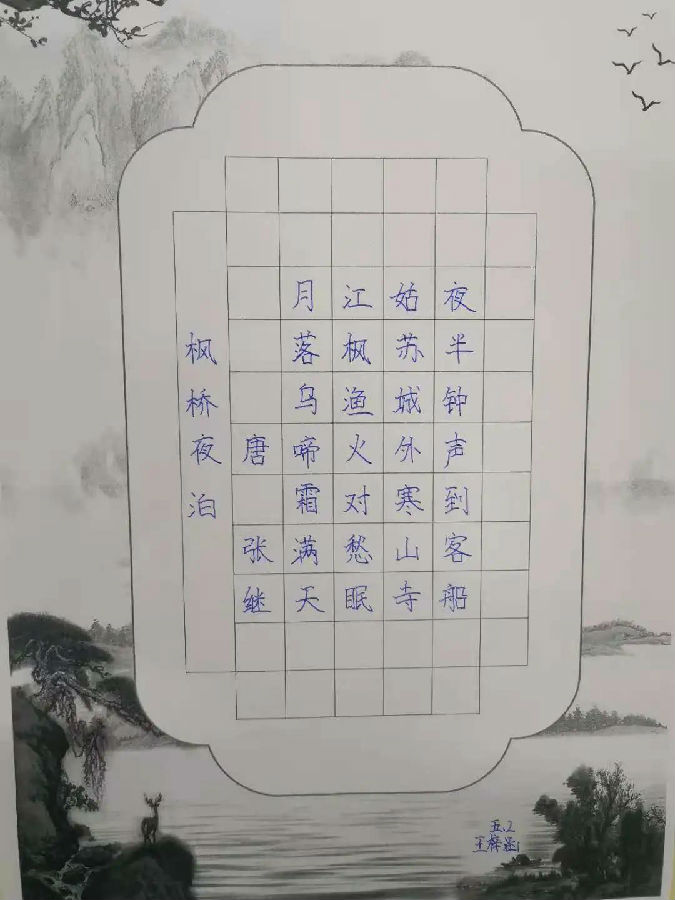 枫桥夜泊
唐 张继
月落乌啼霜满天
江枫渔火对愁眠
姑苏城外寒山寺
夜半钟声到客船
五.2
王梓涵